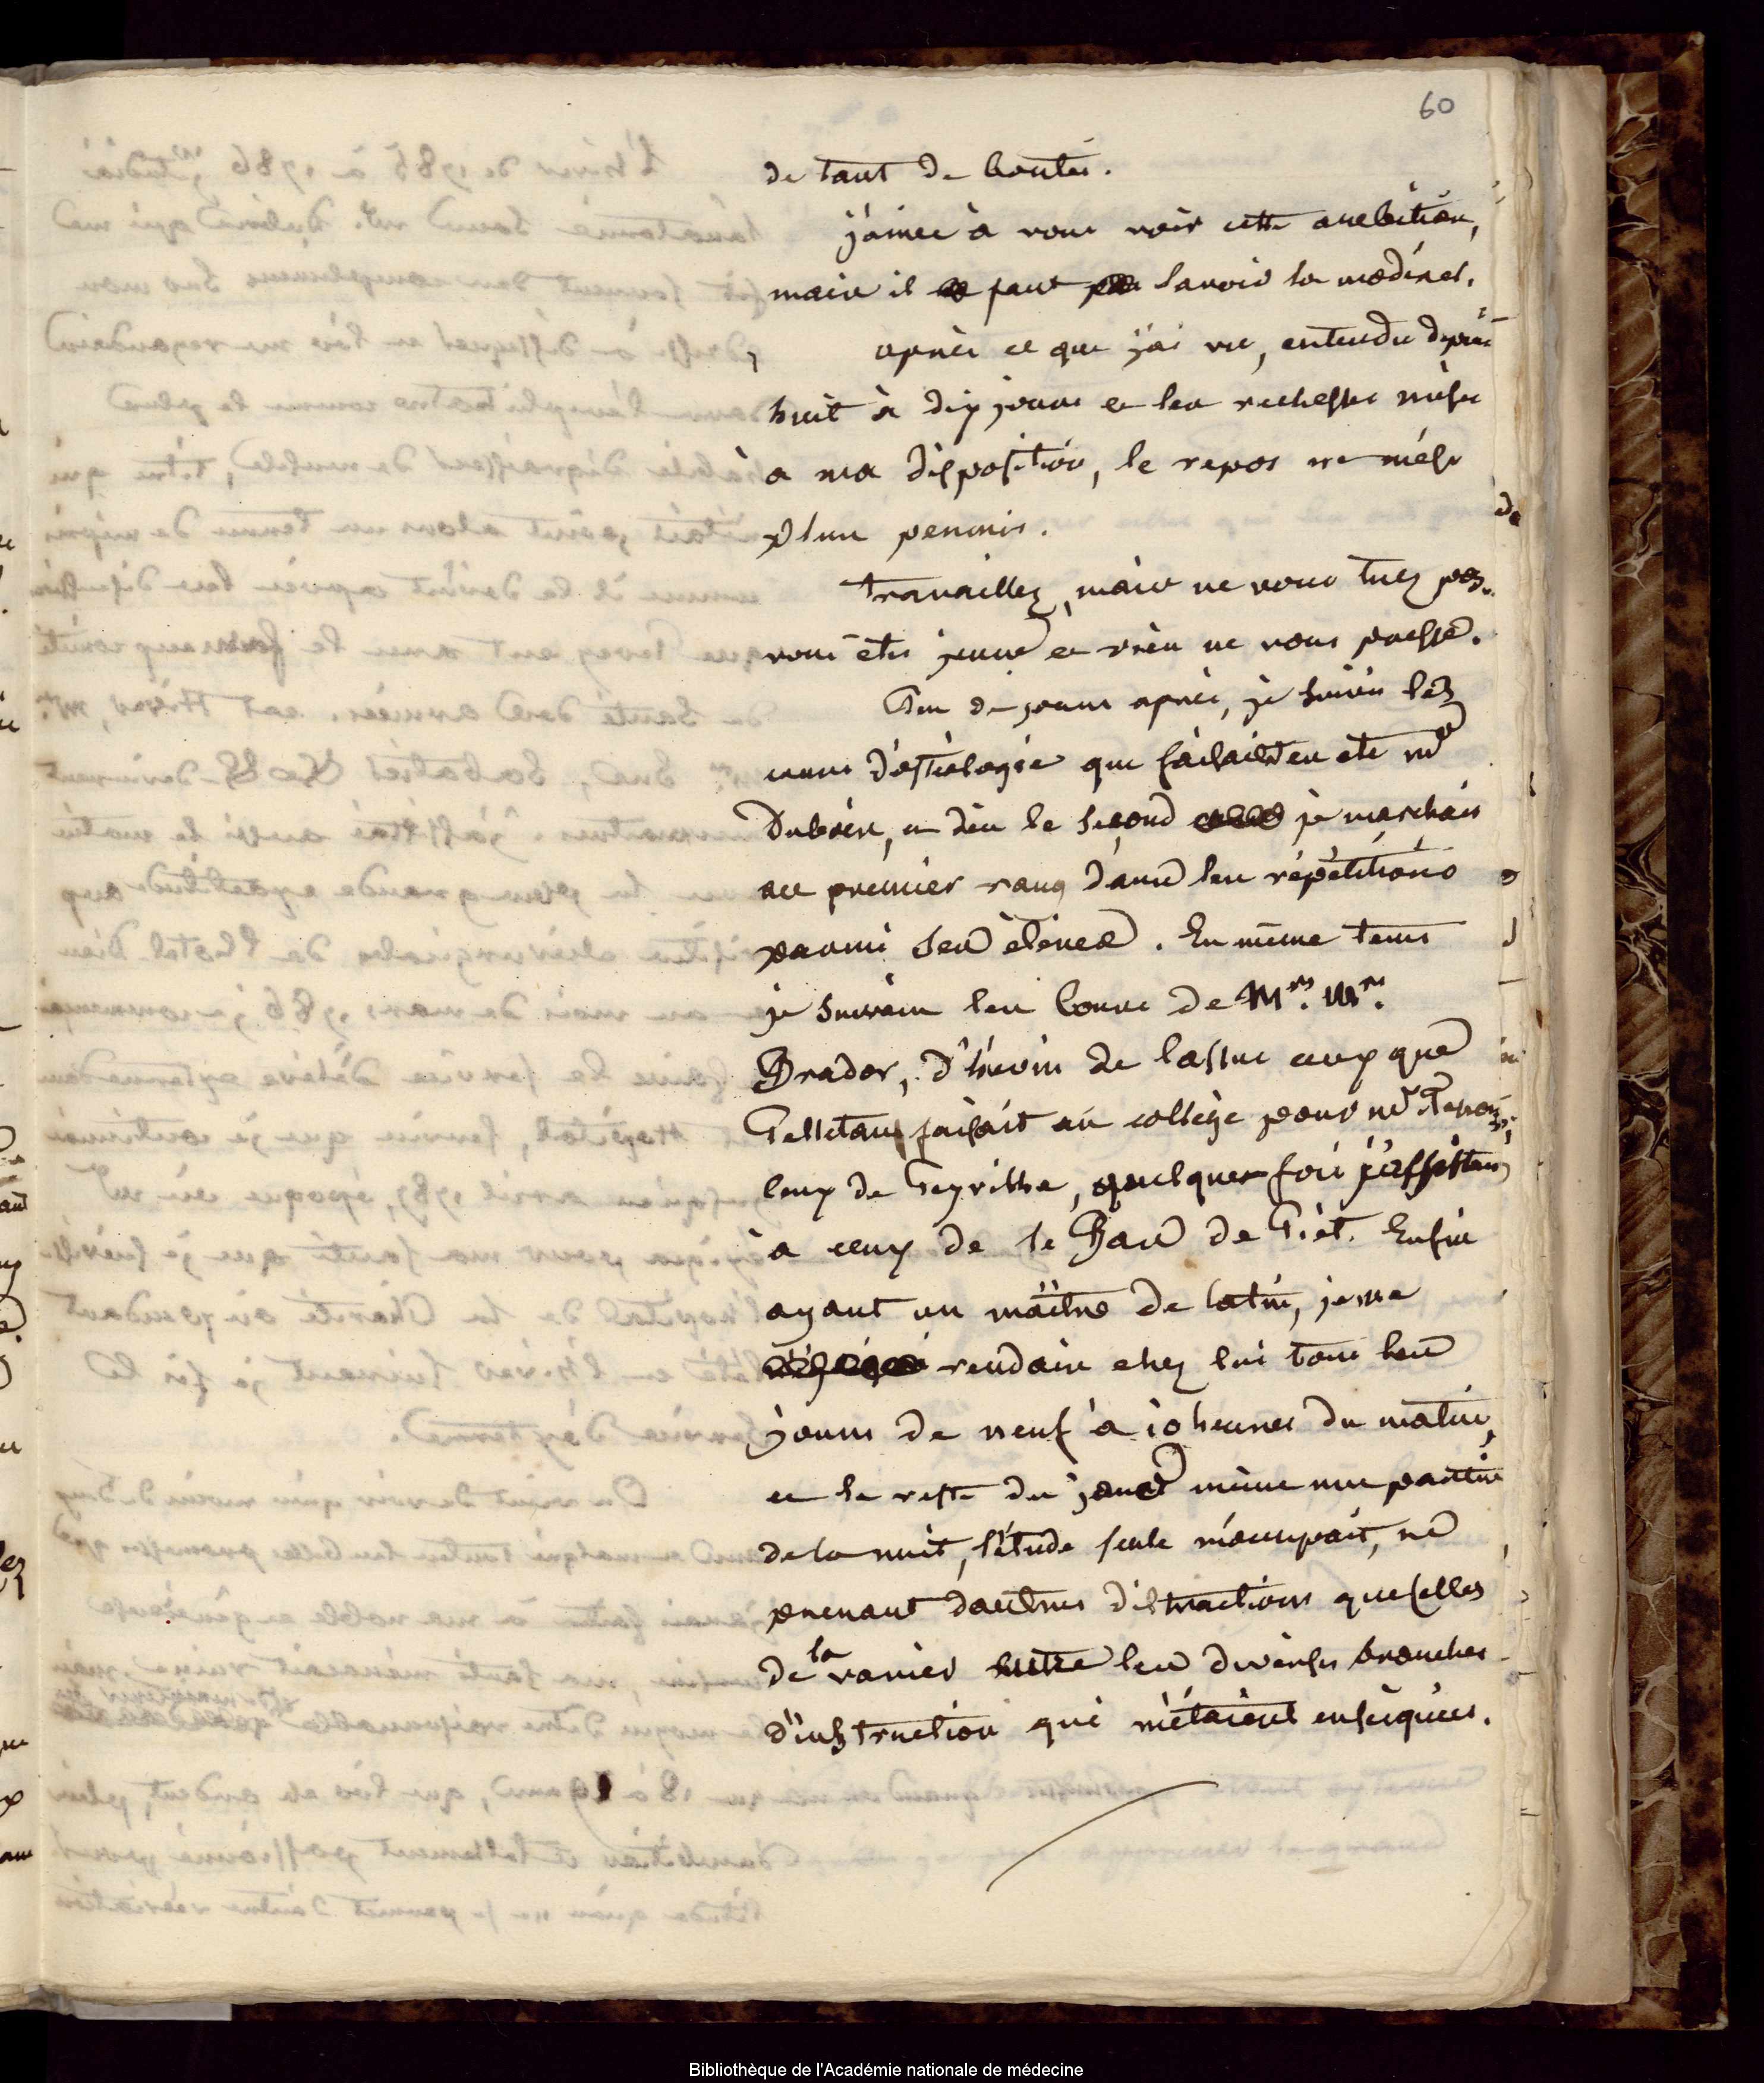 60
de tant de bontés.
j'aime à vous voir cette ambition,
mais il faut savoir la modérer.
après ce que j'ai vu, entendu depuis
huit à dix jours et les richesses mises
à ma disposition, le repos ne m'est
plus permis.
travaillez, mais ne vous tuez pas.
vous êtes jeune et rien ne vous presse.
Peu de jours après, je suivis les
cours d'ostéologie que faisait en été mr
Dubois, et dès le second je marchais
au premier rang dans les répétitions
parmi ses élèves. En même tems
je suivais les cours de Mrs. Mrs.
Brador, d'hévin de lassus ceux que
Pelletan faisait au collège pour mr.
ceux de Peyrilhe, quelques fois j'assistais
à ceux de le Bas de Piet. Enfin
ayant un maître de latin, je me
rendais chez lui tous les
jours de neuf à 10 heures du matin,
et le reste du jour même une partie
de la nuit, l'étude seule m'occupait, ne
prenant d'autres distractions que celles
de la varier les diverses branches
d'instruction qui m'étaient enseignées.
Bibliothèque de l'Académie nationale de médecine